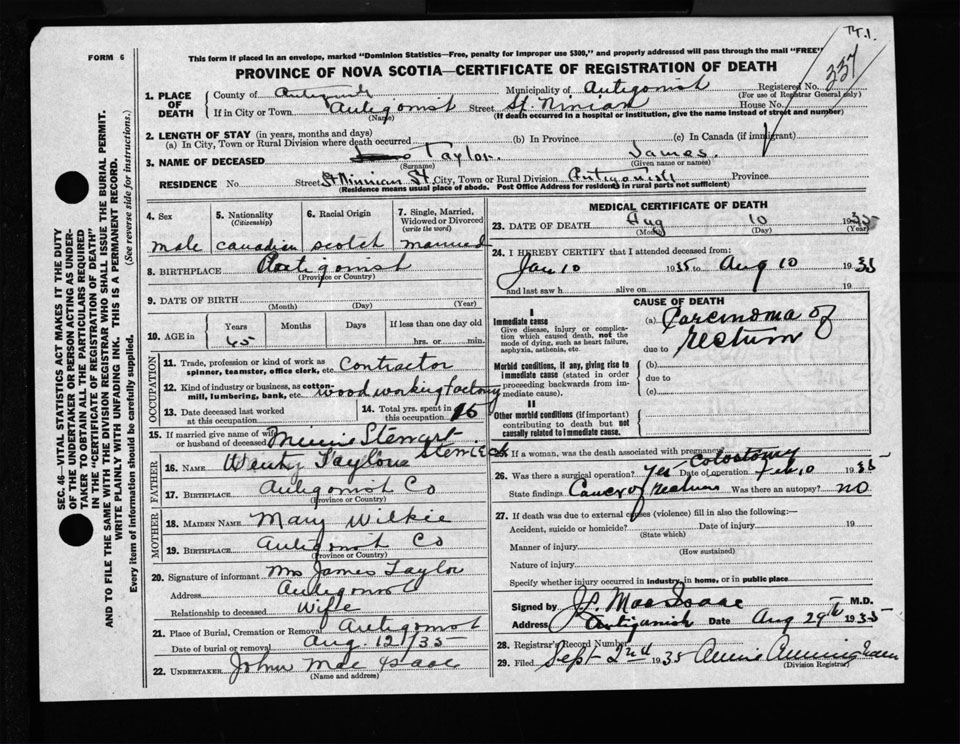 FORM 6
This form if placed in an envelope, marked "Dominion Statistics—Free, penalty for improper use $300," and properly addressed will pass through the mail "FREE"
PROVINCE OF NOVA SCOTIA—CERTIFICATE OF REGISTRATION OF DEATH
337
1. PLACE OF DEATH
County of
Municipality of Antigonist
Registered No.
(For use of Registrar General only)
If in City or Town Antigonist Street St. Ninian House No.
(Name)
(If death occurred in a hospital or institution, give the name instead of street and number)
2. LENGTH OF STAY (in years, months and days)
(a) In City, Town or Rural Division where death occurred (b) In Province (c) In Canada (if immigrant)
3. NAME OF DECEASED Taylor. James.
(Surname) (Given name or names)
RESIDENCE No. Street St Ninnian St. City, Town or Rural Division Antigonish Province
(Residence means usual place of abode. Post Office Address for residents in rural parts not sufficient)
4. Sex
5. Nationality (Citizenship)
6. Racial Origin
7. Single, Married, Widowed or Divorced (write the word)
male canadian scotch married
8. BIRTHPLACE Antigonist
(Province or Country)
9. DATE OF BIRTH
(Month) (Day) (Year)
10. AGE in Years Months Days If less than one day old
65 hrs. or min.
OCCUPATION
11. Trade, profession or kind of work as spinner, teamster, office clerk, etc. Contractor
12. Kind of industry or business, as cotton-mill, lumbering, bank, etc. wood working factory
13. Date deceased last worked at this occupation
14. Total yrs. spent in this occupation
15. If married give name of wife or husband of deceased Minnie Stewart
FATHER
16. NAME
17. BIRTHPLACE Antigonist Co
(Province or Country)
MOTHER
18. MAIDEN NAME Mary Wilkie
19. BIRTHPLACE Antigonist Co
(Province or Country)
20. Signature of informant Mrs James Taylor
Address
Relationship to deceased Wife
21. Place of Burial, Cremation or Removal Antigonist
Date of burial or removal Aug 12/35
22. UNDERTAKER John Mac Isaac
(Name and address)
MEDICAL CERTIFICATE OF DEATH
23. DATE OF DEATH Aug 10 1935
(Month) (Day) (Year)
24. I HEREBY CERTIFY that I attended deceased from:
Jan 10 1935 to Aug 10 1935
and last saw h alive on 19
CAUSE OF DEATH
I
Immediate cause
Give disease, injury or complication which caused death, not the mode of dying, such as heart failure, asphyxia, asthenia, etc.
(a) Carcinoma of
due to rectum
Morbid conditions, if any, giving rise to immediate cause (stated in order proceeding backwards from immediate cause).
(b)
due to
(c)
II
Other morbid conditions (if important) contributing to death but not causally related to immediate cause.
If a woman, was the death associated with pregnancy?
Colostomy
26. Was there a surgical operation? Yes Date of operation Feb. 10 1935
State findings Cancer of rectum Was there an autopsy? no
27. If death was due to external causes (violence) fill in also the following:—
Accident, suicide or homicide? Date of injury 19
(State which)
Manner of injury
(How sustained)
Nature of injury
Specify whether injury occurred in industry, in home, or in public place
Signed by J. MacIsaac M.D.
Address Antigonish Date Aug 29th 1935
28. Registrar's Record Number
29. Filed Sept 2nd 1935
(Division Registrar)
SEC. 46—VITAL STATISTICS ACT MAKES IT THE DUTY
OF THE UNDERTAKER OR PERSON ACTING AS UNDER-
TAKER TO OBTAIN ALL THE PARTICULARS REQUIRED
IN THE "CERTIFICATE OF REGISTRATION OF DEATH"
AND TO FILE THE SAME WITH THE DIVISION REGISTRAR WHO SHALL ISSUE THE BURIAL PERMIT.
WRITE PLAINLY WITH UNFADING INK. THIS IS A PERMANENT RECORD.
Every item of information should be carefully supplied. (See reverse side for instructions.)